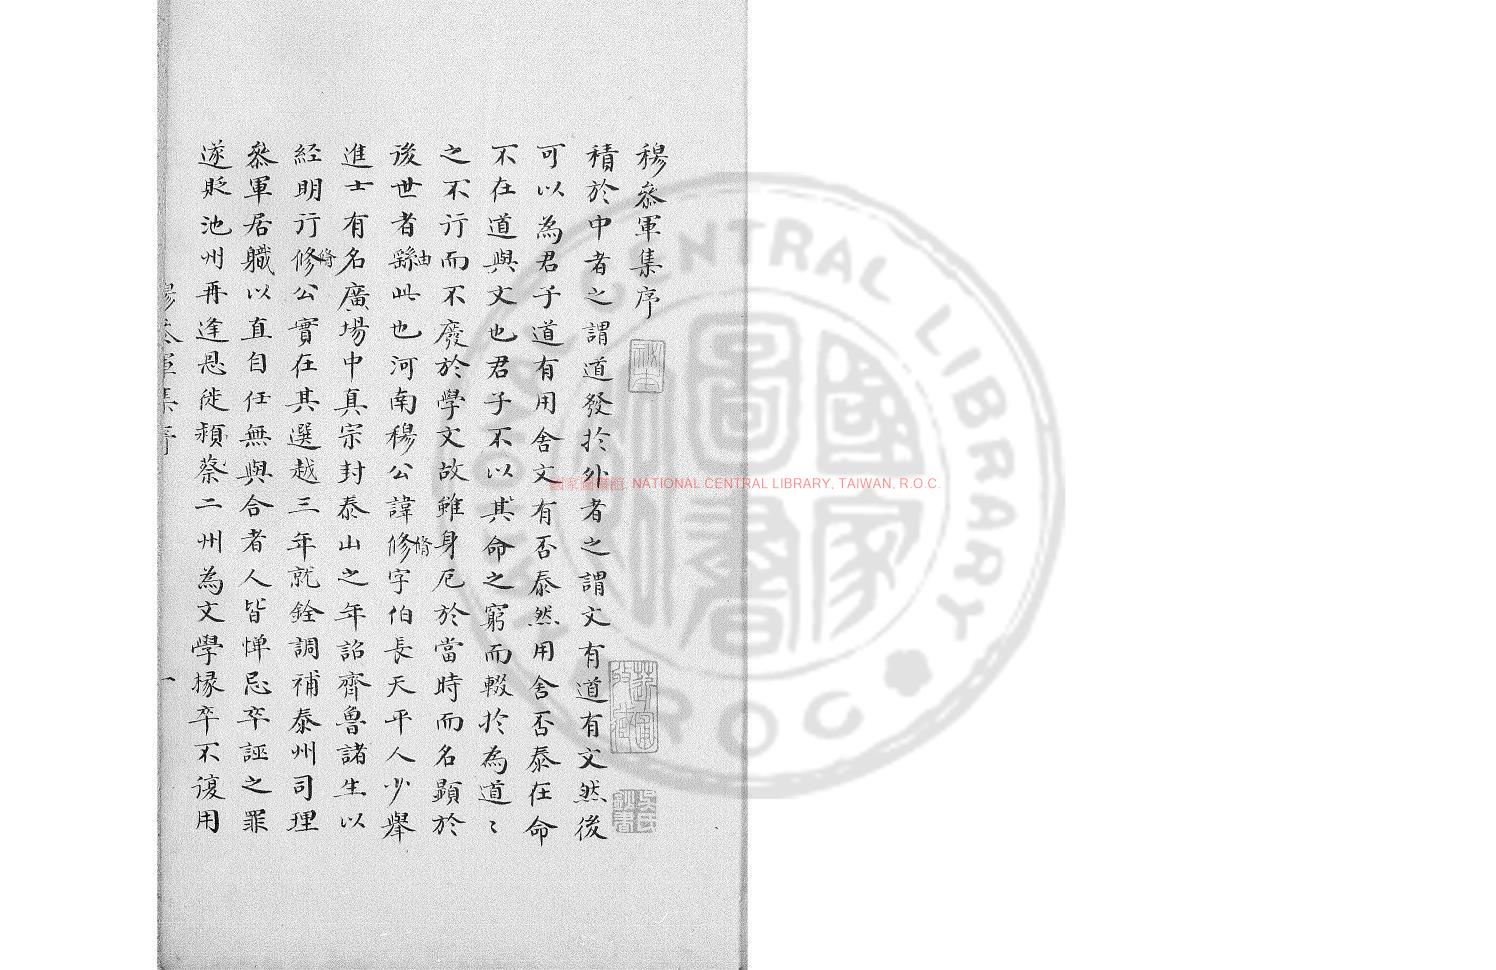 穆叅軍集序
積於中者之謂道發扵外者之謂文有道有文然後
可以為君子道有用舍文有否泰然用舍否泰在命
不在道與文也君子不以其命之窮而輟扵為道〻
之不行而不廢於學文故雖身厄於當時而名顯於
後世者繇由此也河南穆公諱修脩字伯長天平人少舉
進士有名廣場中真宗封泰山之年詔齊魯諸生以
經明行修脩公實在其選越三年就銓調補泰州司理
叅軍居職以直自任無與合者人皆憚忌卒誣之罪
遂貶池州再逢恩徙潁蔡二州為文學掾卒不復用
穆叅軍集序
一
國家圖書館
NATIONAL CENTRAL LIBRARY
R.O.C
國家圖書館, NATIONAL CENTRAL LIBRARY, TAIWAN, R.O.C.